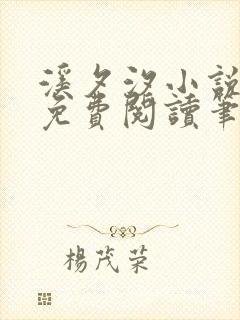 溪夕汐小說
免費閱讀筆
楊茂榮